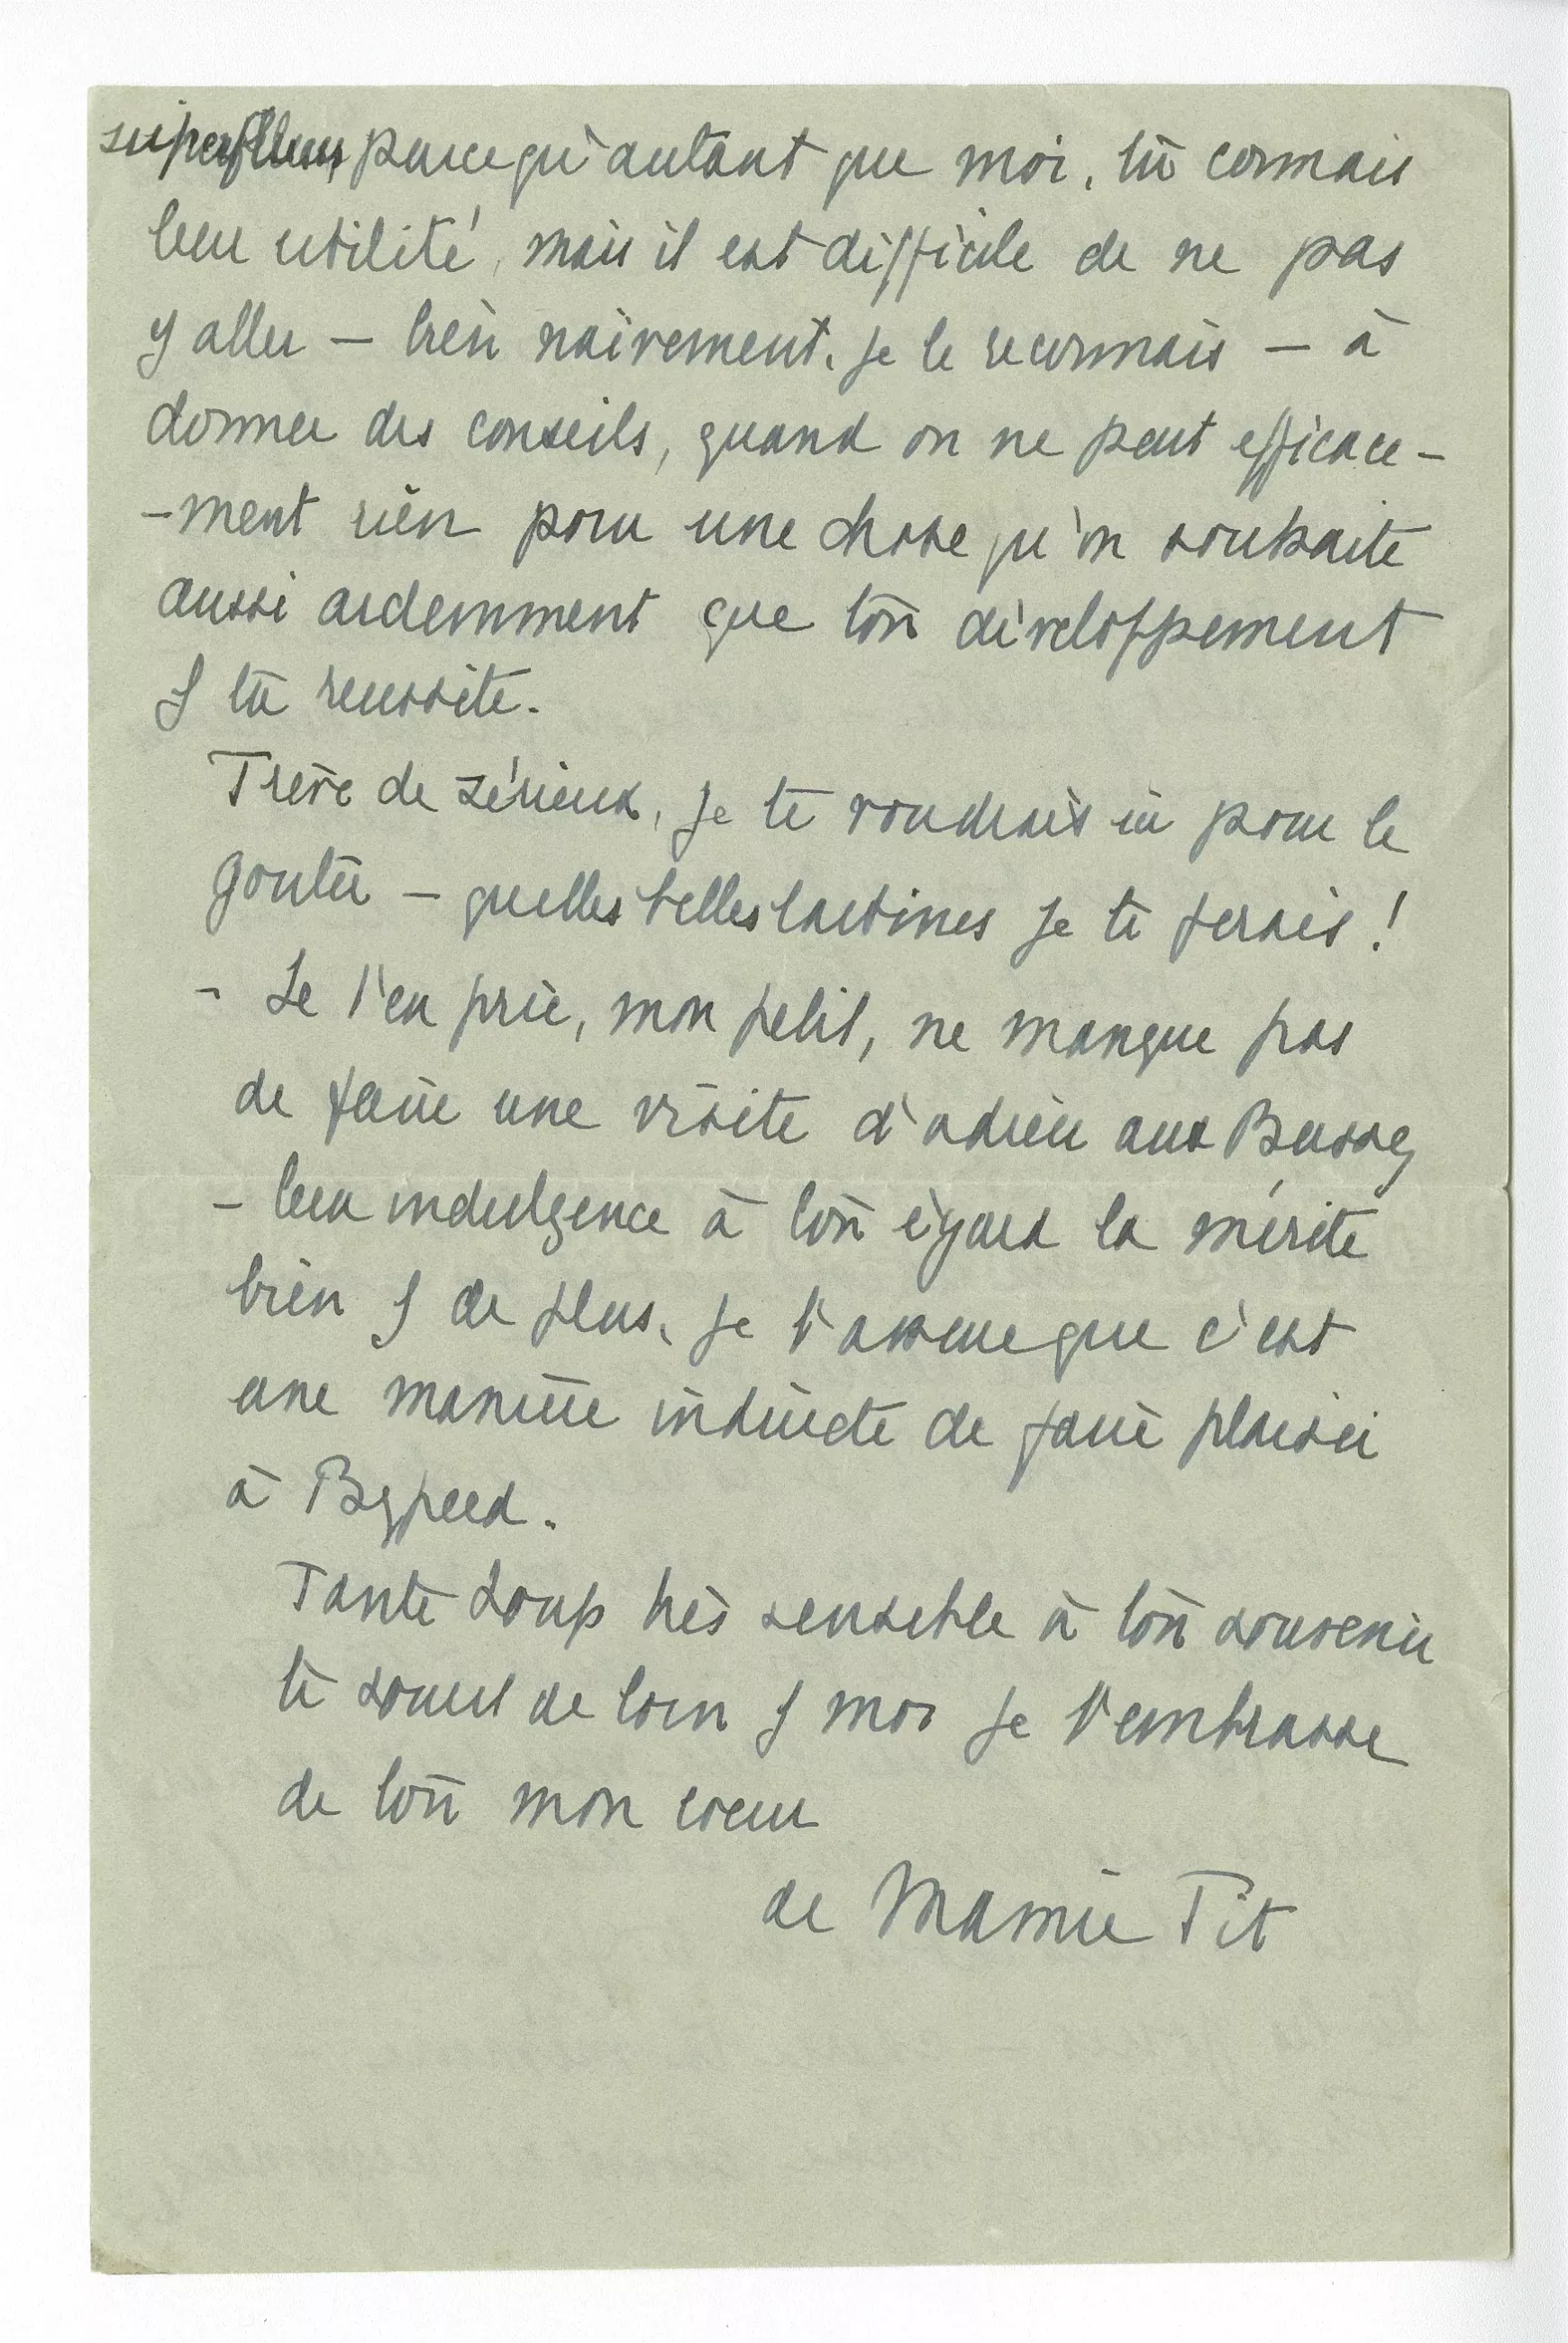 superflues, parce qu'autant que moi, tu connais
leur utilité, mais il est difficile de ne pas
y aller — bien naïvement, je le reconnais — à
donner des conseils, quand on ne peut efficace-
-ment rien pour une chose qu'on souhaite
aussi ardemment que ton développement
& ta reussite.
Trève de sérieux, je te voudrais ici pour le
gouter — quelles belles tartines je te ferais !
- Je t'en prie, mon petit, ne manque pas
de faire une visite d'adieu aux
- leur indulgence à ton égard la mérite
bien & de plus, je t'assure que c'est
une manière indirecte de faire plaisir
à
Tante Loup très sensible à ton souvenir
te sourit de loin & moi je t'embrasse
de tout mon coeur
de Mamie Tit